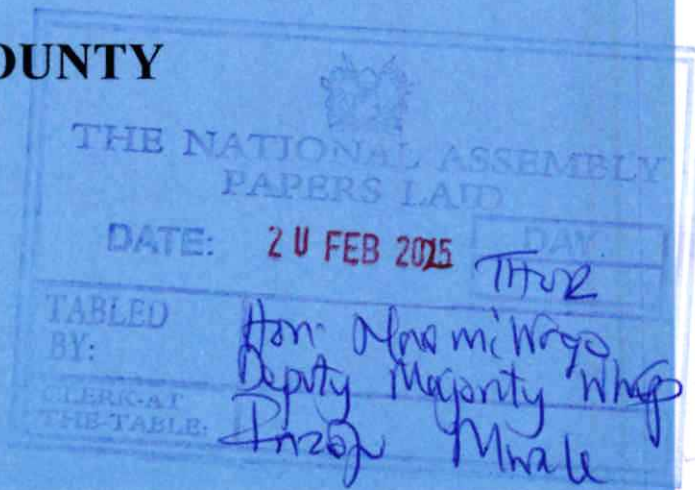 OUNTY
THE NATIONAL ASSEMBLY
PAPERS LAID
DATE: 20 FEB 2025 DAY
THUR
TABLED BY: Hon. Naomi Waqo
Deputy Majority Whip
CLERK-AT THE-TABLE: Mwale